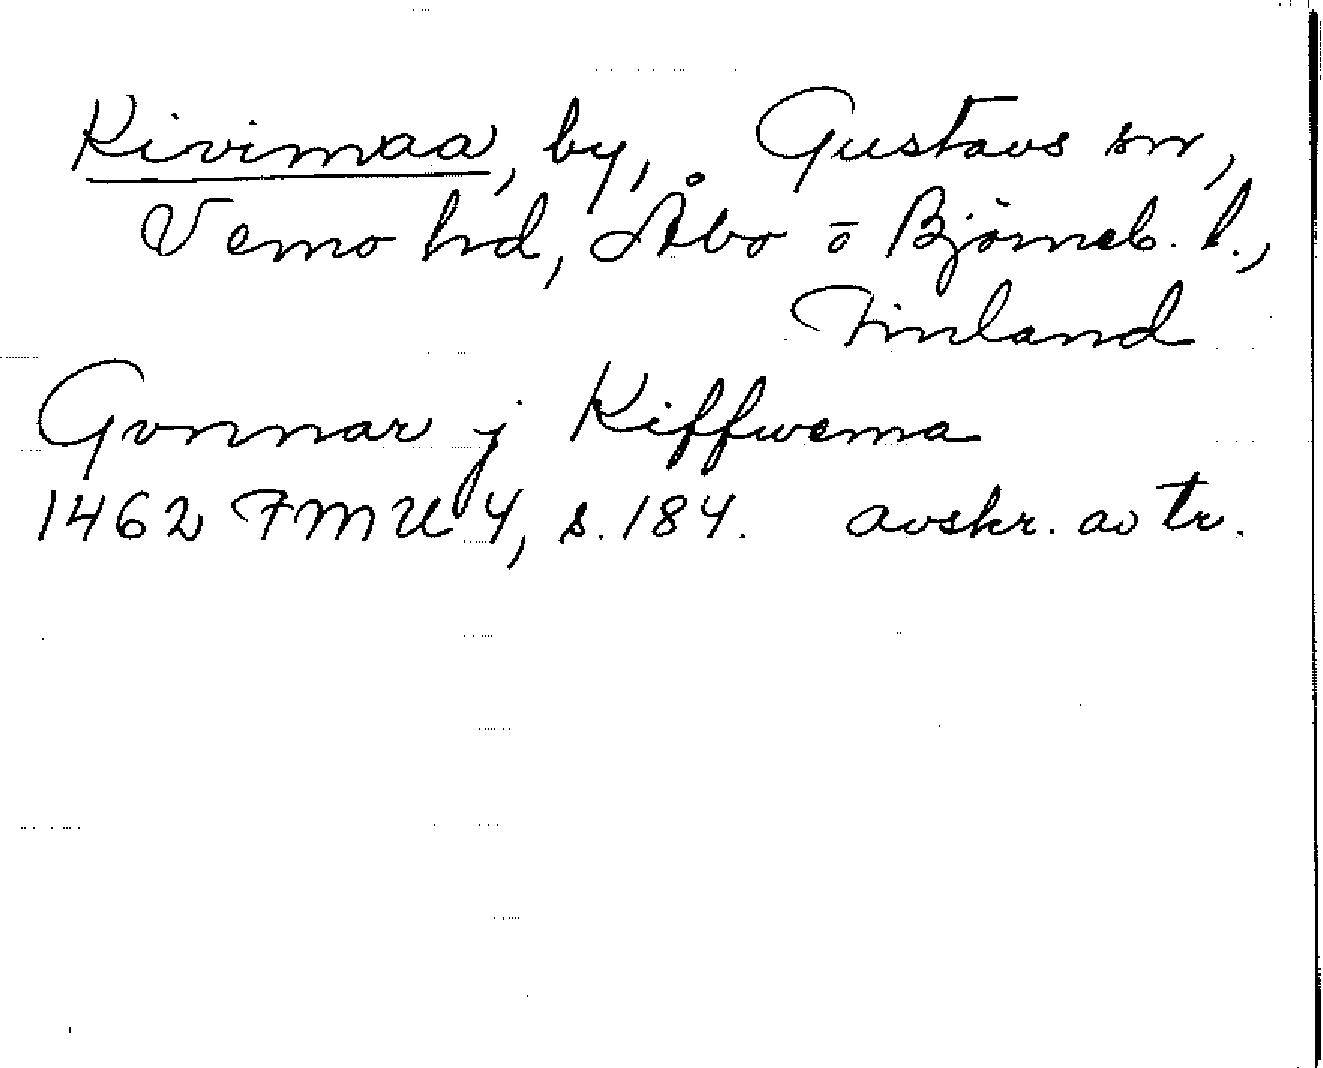 Kivimaa, by, Gustavs sn,
Vemo hd, Åbo o Björneb. l.,
Finland
Gunnar j Kiffwema
1462 FMU 4, s. 184. avskr. av tr.